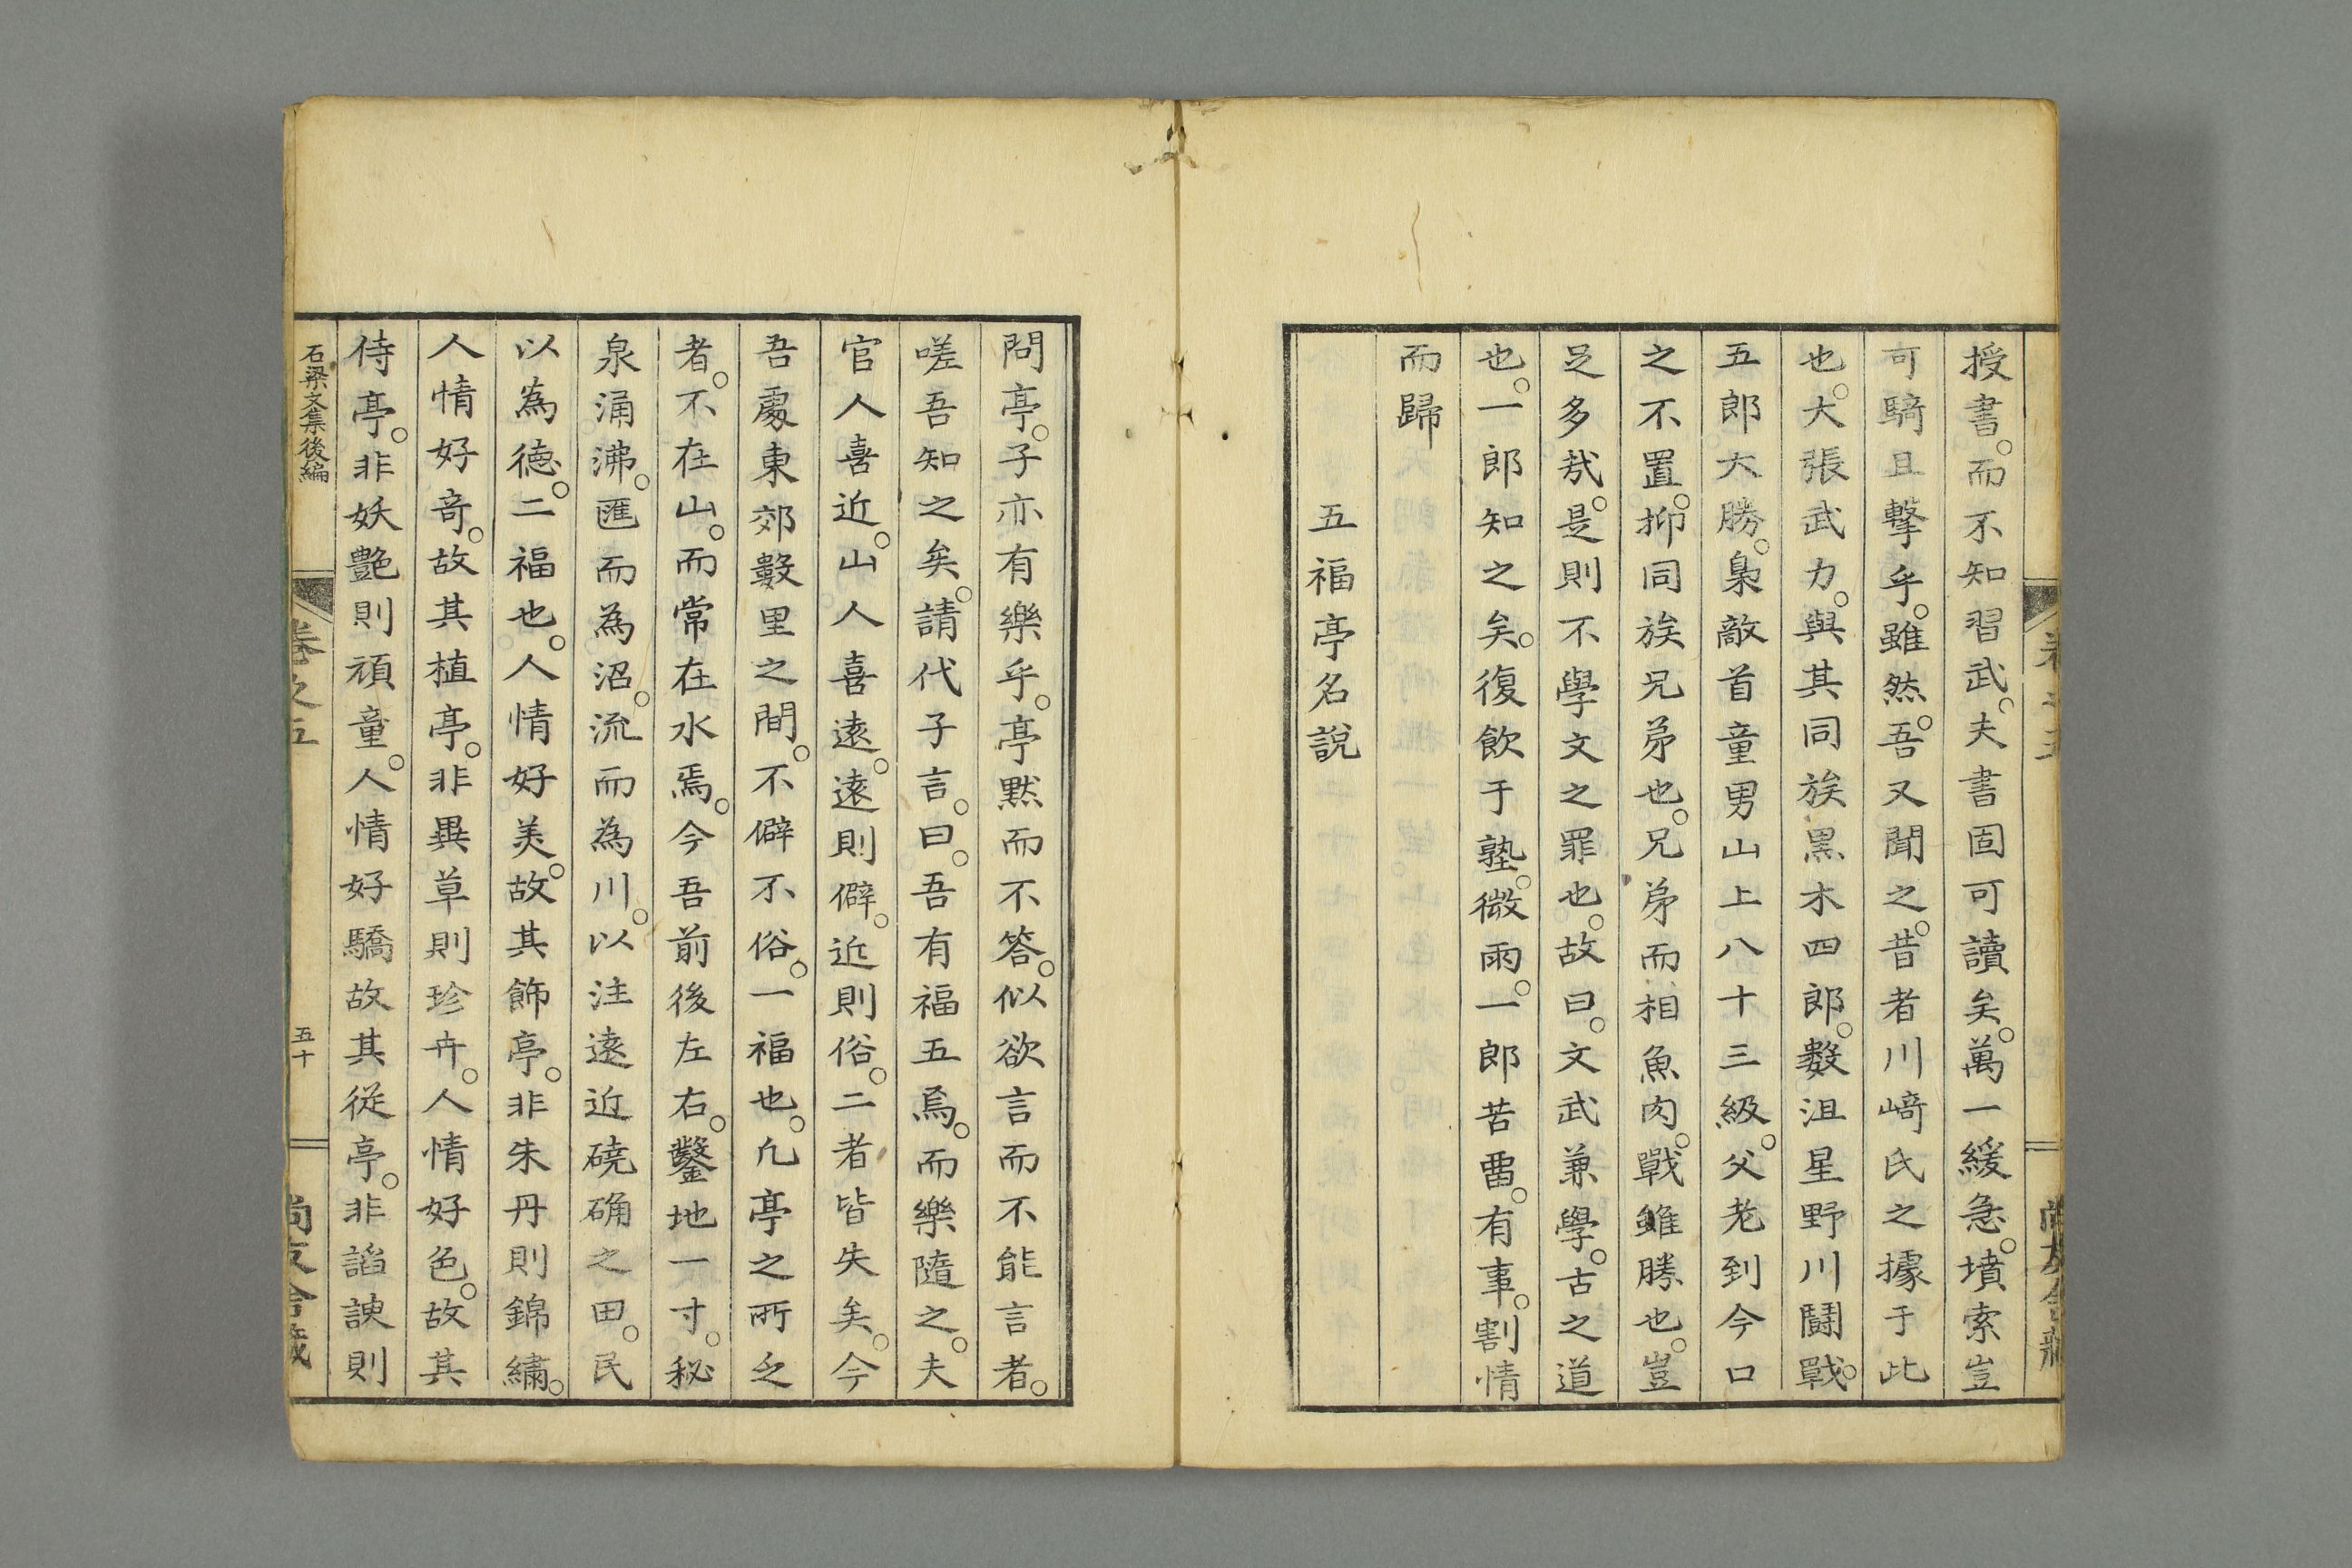 授書。而不知習武。夫書固可讀矣。萬一緩急。墳索豈
可騎且擊乎。雖然。吾又聞之。昔者川﨑氏之據于此
也。大張武力。與其同族黒木四郎。數沮星野川鬪戰。
五郎大勝。梟敵首童男山上八十三級。父老到今口
之不置。抑同族兄弟也。兄弟而相魚肉。戰雖勝也。豈
足多哉。是則不學文之罪也。故曰。文武兼學。古之道
也。一郎知之矣。復飲于塾。微雨。一郎苦畱。有事。割情
而歸
五福亭名說
問亭。子亦有樂乎。亭黙而不答。似欲言而不能言者。
嗟吾知之矣。請代子言。曰。吾有福五焉。而樂隨之。夫
官人喜近。山人喜遠。遠則僻。近則俗。二者皆失矣。今
吾處東郊數里之間。不僻不俗。一福也。凢亭之所乏
者。不在山。而常在水焉。今吾前後左右。鑿地一寸。秘
泉涌沸。匯而為沼。流而為川。以注遠近磽确之田。民
以為德。二福也。人情好美。故其飾亭。非朱丹則錦繡。
人情好竒。故其植亭。非異草則珍卉。人情好色。故其
侍亭。非妖艶則頑童。人情好驕故其従亭。非諂諛則
石梁文集後編
卷之五
五十
尚友舎蔵